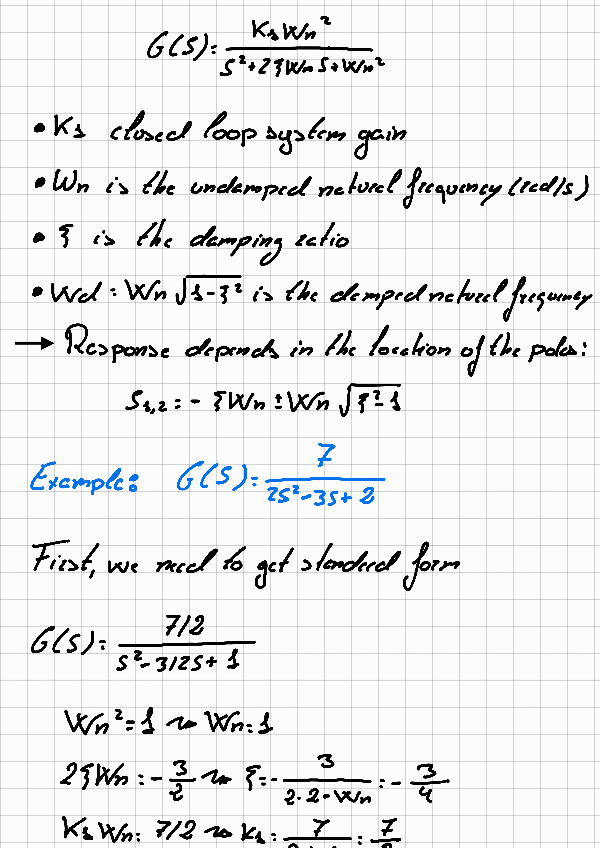 G(s) = Ks Wn² / (s² + 2ξWn s + Wn²)
• Ks closed loop system gain
• Wn is the undamped natural frequency (rad/s)
• ξ is the damping ratio
• Wd = Wn √(1-ξ²) is the damped natural frequency
→ Response depends in the location of the poles:
S1,2 = - ξWn ± Wn √(ξ²-1)
Example: G(s) = 7 / (2s² - 3s + 2)
First, we need to get standard form
G(s) = 7/2 / (s² - 3/2s + 1)
Wn² = 1 ~> Wn = 1
2ξWn = - 3/2 ~> ξ = - 3 / (2·2·Wn) = - 3/4
Ks Wn = 7/2 ~> Ks = 7 / = 7/